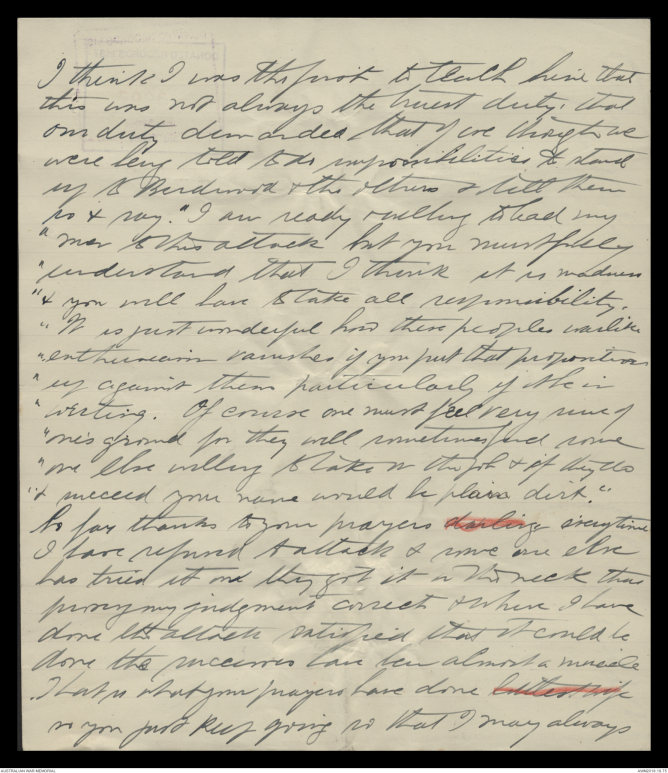 I think I was the first to teach him that
this was not always the truest duty, that
our duty demanded that if we thought we
were being told to do impossibilities to stand
up to Birdwood & the others & tell them
so & say. "I am ready & willing to lead my
"men to this attack but you must fully
"understand that I think it is madness
"& you will have to take all responsibility.
"It is just wonderful how these peoples warlike
"enthusiasm vanishes if you put that proposition
"up against them particularly if it be in
"writing. Of course one must feel very sure of
"one's ground for they will sometimes find some
"one else willing to take on the job & if they do
"& succeed your name would be plain dirt."
So far thanks to your prayers darling everytime
I have refused to attack & some one else
has tried it on they got it in the neck thus
proving my judgment correct & where I have
done the attack satisfied that it could be
done the successes have been almost a miracle
That is what your prayers have done littlest wife
so you just keep going so that I may always
AUSTRALIAN WAR MEMORIAL